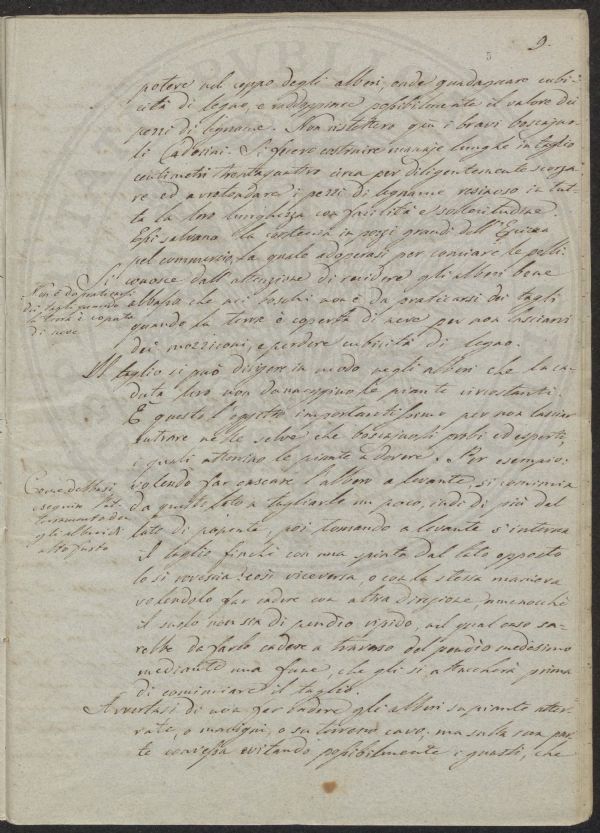 9.
5
potere nel ceppo degli alberi, onde guadagnare cubi-
cità di legno, e raddoppiare possibilmente il valore dei
pezzi di legname. Non ristettero quì i bravi boscajuo-
li Cadorini. Si fecero costruire manaje lunghe in taglio
centimetri trentaquattro circa per diligentemente scorza-
re ed arrotondare i pezzi di legname resinoso in tut-
ta la loro lunghezza con facilità e sollecitudine.
Essi salvano la corteccia in pezzi grandi dell'
pel commercio, la quale adoperasi per conciare le pelli.
Si conosce dall'attenzione di recidere gli alberi bene
abbasso che nei boschi non è da praticarsi dei tagli
quando la terra è coperta di neve per non lasciarvi
dei mozziconi, e perdere cubicità di legno.
Non è da praticarsi
dei tagli quando
la terra è coperta
di neve
Il taglio si può dirigere in modo negli alberi che la ca-
duta loro non danneggino le piante circostanti.
È questo l'oggetto importantissimo per non lasciar
entrare nelle selve che boscajuoli probi ed esperti,
i quali atterrino le piante a dovere. Per esempio:
volendo far cascare l'albero a levante, si comincia
da questo lato a tagliarlo un poco, indi di più dal
lato di ponente, poi tornando a levante s'interna
il taglio finchè con una spinta dal lato opposto
lo si rovescia: così viceversa, o con la stessa maniera
volendolo far cadere con altra direzione, ammenocchè
il suolo non sia di pendio ripido, nel qual caso sa-
rebbe da farlo cadere a traverso del pendìo medesimo
mediante una fune, che gli si attaccherà prima
di cominciare il taglio.
Come debbasi
eseguir l'at-
terramento de-
gli alberi di
alto fusto
Avvertasi di non far cadere gli alberi su piante atter-
rate, o macigni, o su terreno cavo; ma sulla sua par-
te convessa evitando possibilmente i guasti, che